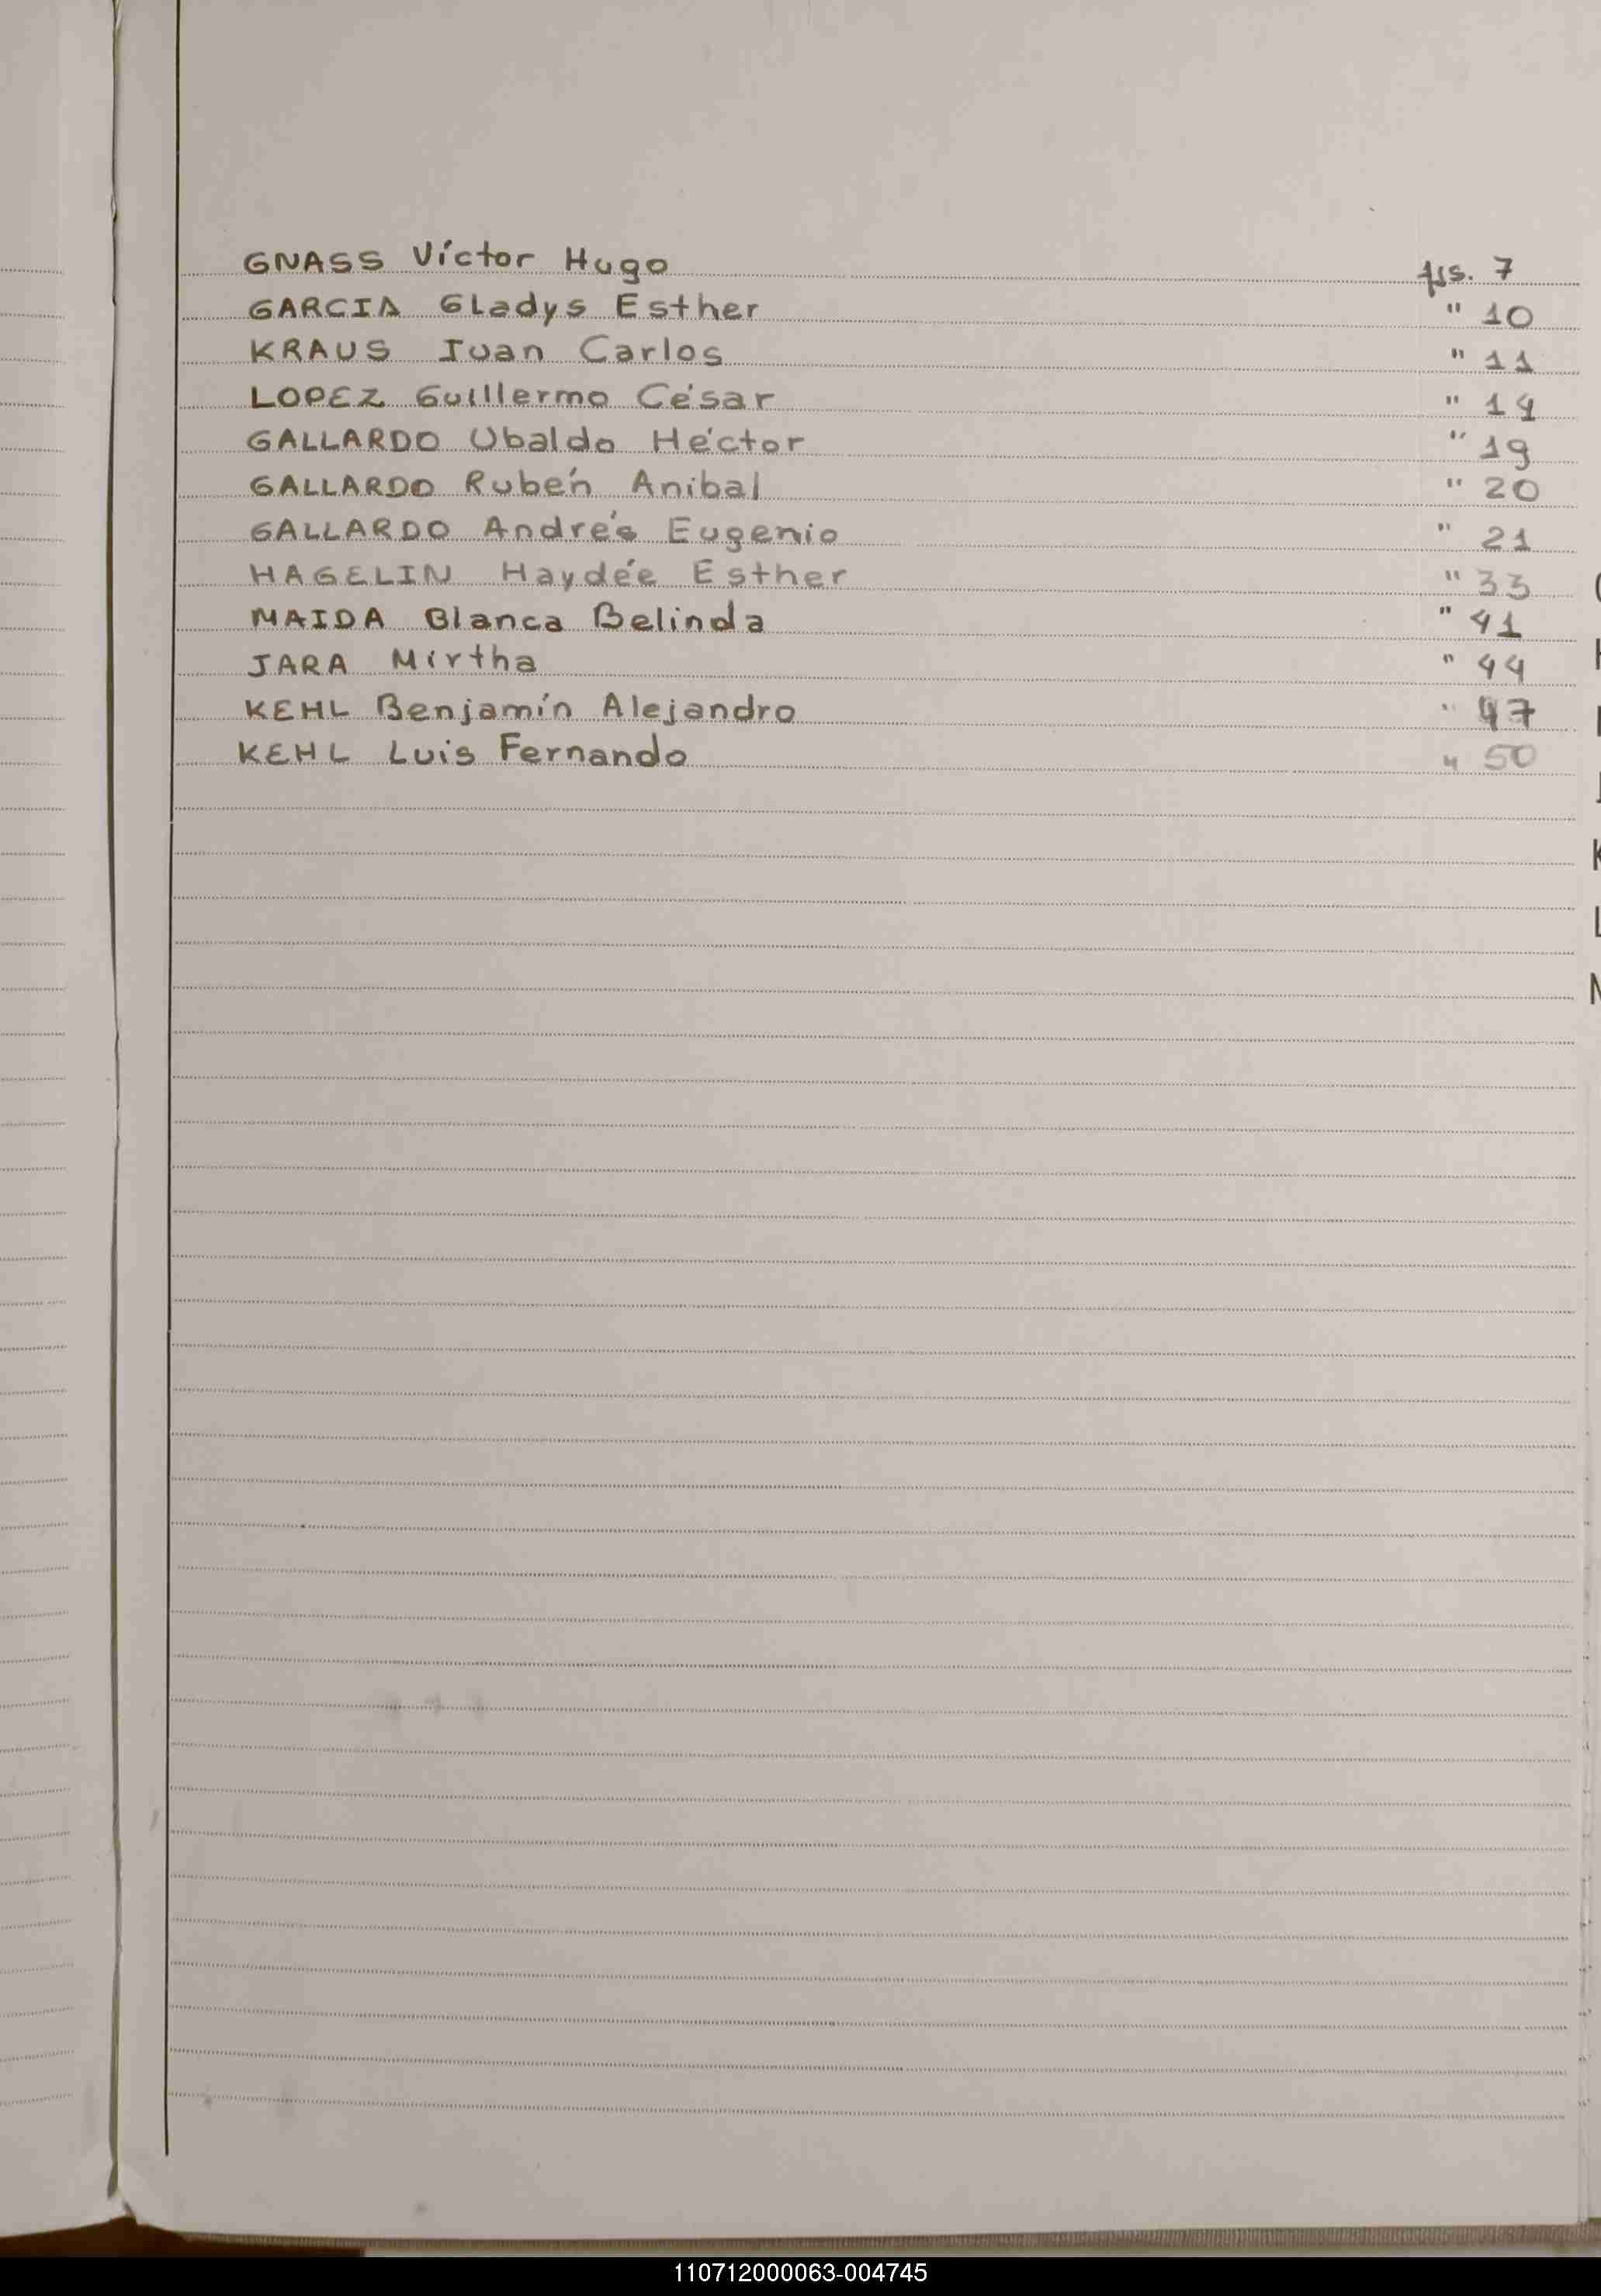 GNASS Víctor Hugo fjs. 7
GARCIA Gladys Esther " 10
KRAUS Juan Carlos " 11
LOPEZ Guillermo César " 14
GALLARDO Ubaldo Héctor " 19
GALLARDO Rubén Anibal " 20
GALLARDO Andrés Eugenio " 21
HAGELIN Haydée Esther " 33
MAIDA Blanca Belinda " 41
JARA Mirtha " 44
KEHL Benjamín Alejandro " 47
KEHL Luis Fernando " 50
110712000063-004745